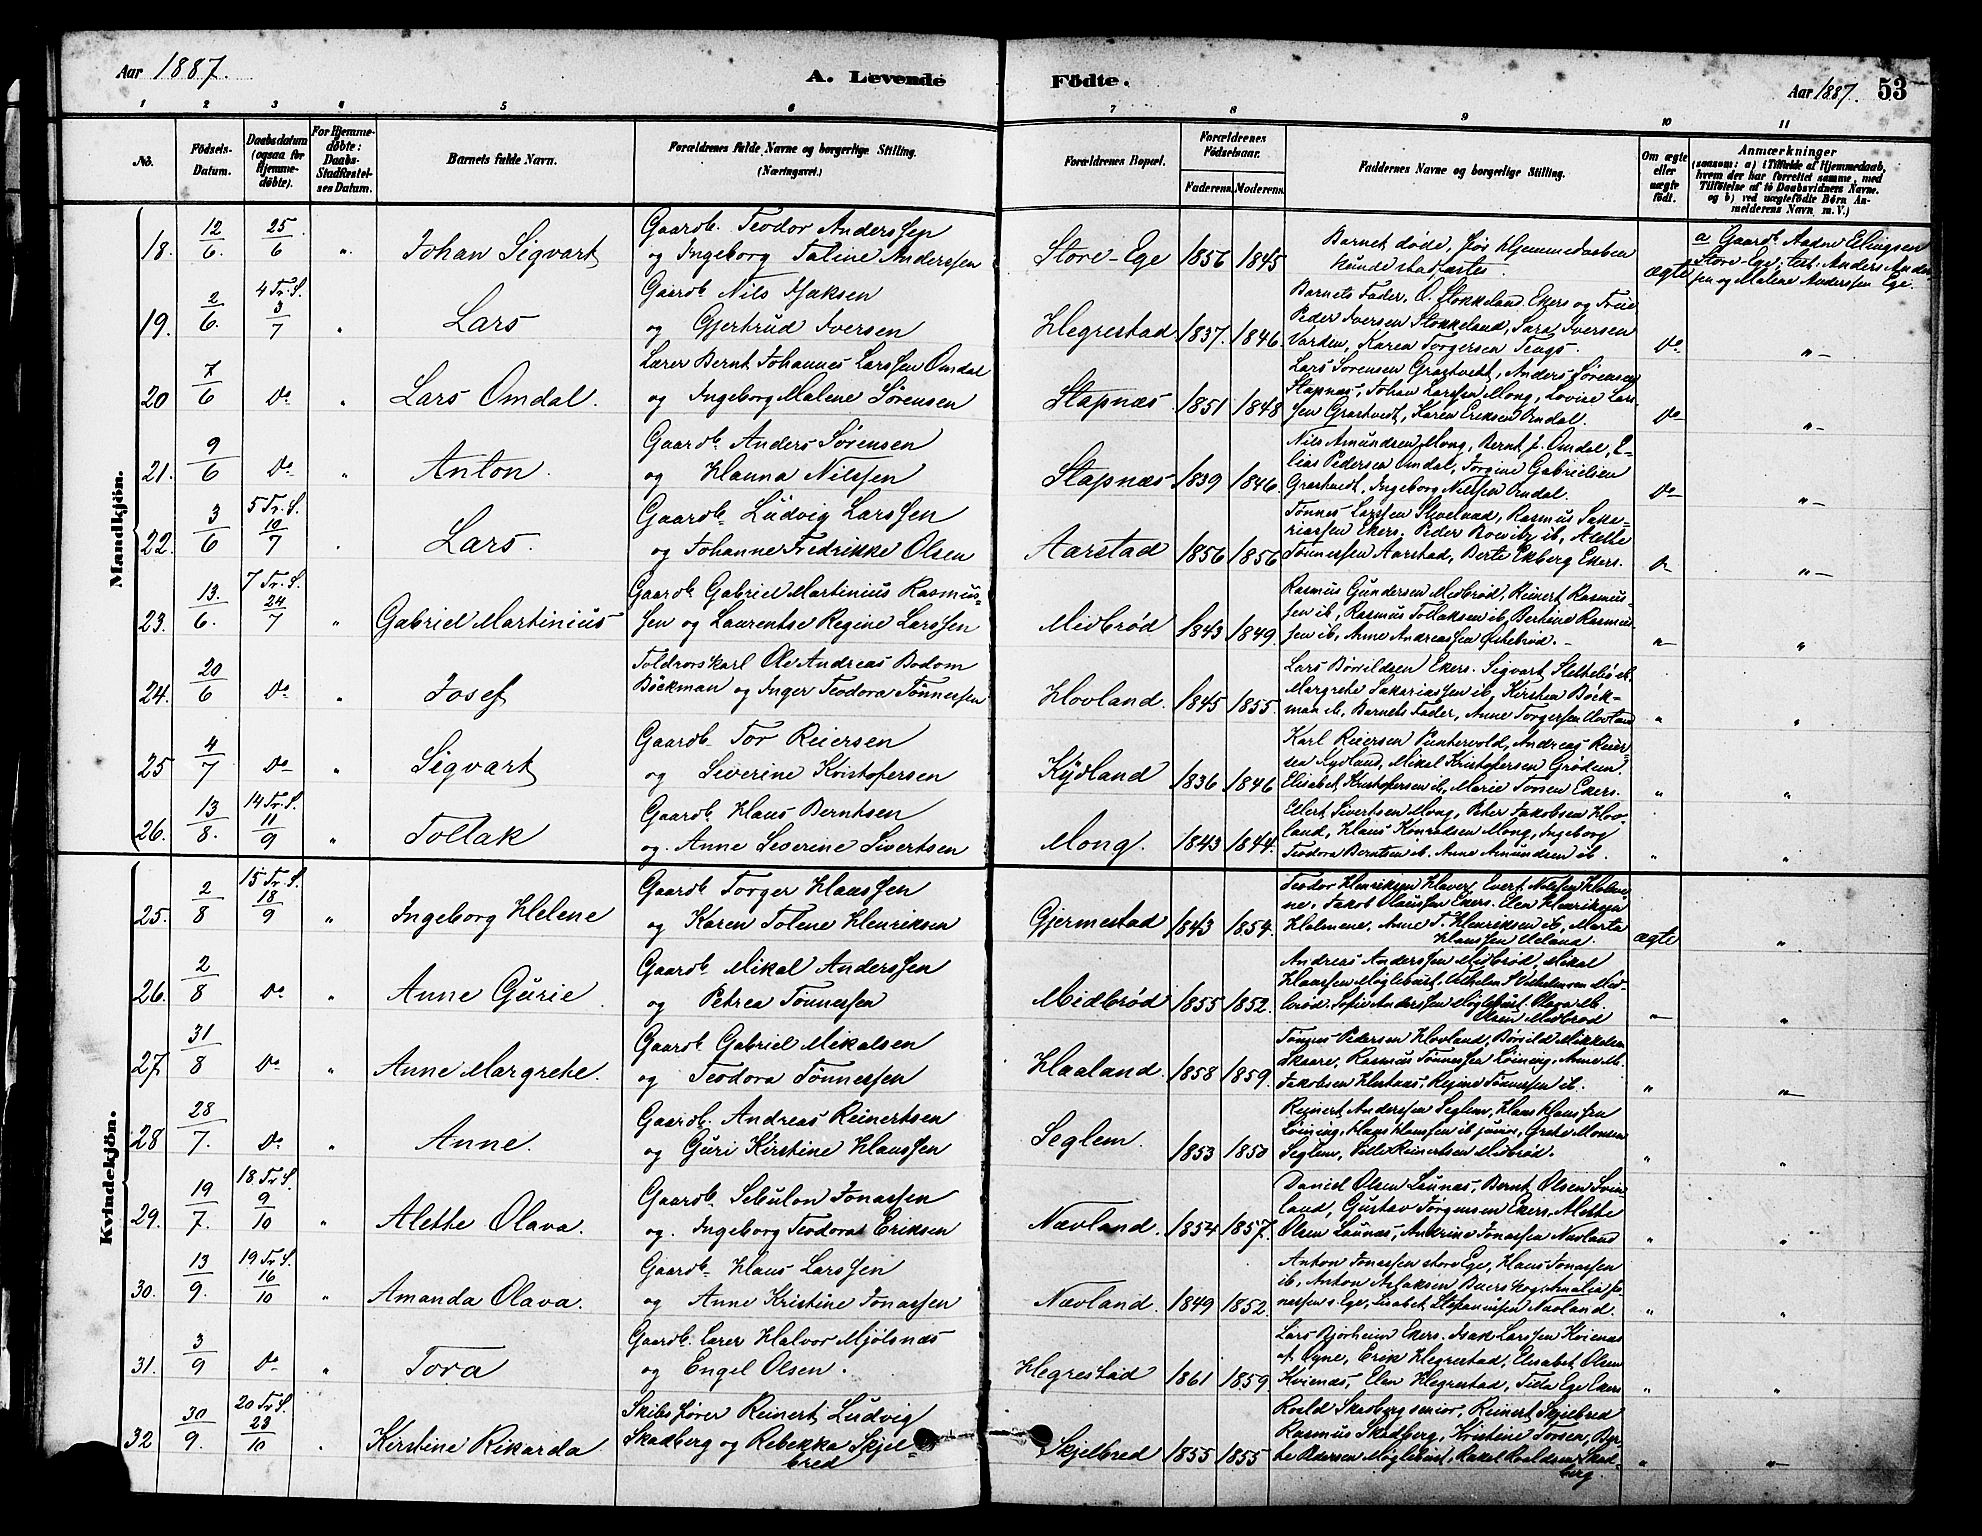 Aar 1887.
A. Levende
Födte.
Aar 1887.
53
1 2 3 4 5 6 7 8 9 10 11
No.
Födsels-Datum.
Daabsdatum (ogsaa for Hjemmedöbte).
For Hjemmedöbte: Daabs-Stadfæstelses Datum.
Barnets fulde Navn.
Forældrenes fulde Navne og borgerlige Stilling.
(Næringsvei.)
Forældrenes Bopæl.
Forældrenes Födselsaar.
Faderens. Moderens.
Faddernes Navne og borgerlige Stilling.
Om ægte eller uægte födt.
Anmærkninger
(saasom: a) i Tilfælde af Hjemmedaab, hvem der har forrettet samme, med Tilföielse af to Daabsvidners Navne, og b) ved uægtefödte Börn Anmelderens Navn m. V.)
Mandkjön.
18. 12/6. 25/6 " Johan Sigvart
Gaardb. Teodor Anderssen
og Ingeborg Taline Anderssen
Store-Ege 1856 1845
Barnet døde, før Hjemmedaaben
kunde stadfæstes.
ægte
a Gaardb. Aadne Ellingsen
Store-Ege; test: Anders Anderssen
og Malene Anderssen Ege.
19. 2/6. 4 Tr. S. 3/7 " Lars
Gaardb. Nils Isaksen
og Gjertrud Iversen
Hegrestad 1837. 1846.
Barnets Fader, O. Stokkeland Ekers og Frue
Peder Iversen Stokkeland, Sara Iversen
Varden, Karen Torgersen Tengs.
Do "
20 7/6 Do " Lars Omdal.
Lærer Bernt Johannes Larssen Omdal
og Ingeborg Malene Sørensen
Stapnæs 1851 1848
Lars Sørensen Grastvedt, Anders Sørensen
Stapnæs, Johan Larssen Mong, Lovise Larssen
Grastvedt, Karen Eriksen Omdal.
Do "
21. 9/6 Do " Anton.
Gaardb. Anders Sørensen
og Hanna Nilssen
Stapnæs 1839 1846.
Nils Amundsen Mong, Bernt J. Omdal, E-
lias Pedersen Omdal, Jorgine Gabrielsen
Grastvedt, Ingeborg Nilssen Omdal.
Do "
22. 3/6 5 Tr. S. 10/7 " Lars.
Gaardb. Ludvig Larssen
og Johanne Fredrikke Olsen
Aarstad 1856 1856
Tønnes Larssen Skvelvad, Rasmus Saka-
riassen Ekers. Peder Rowitz ib, Alethe
Tønnessen Aarstad, Berte Ekberg Ekers.
"
23. 13./6. 7 Tr. S. 24/7 " Gabriel Martinius
Gaardb. Gabriel Martinius Rasmus-
sen og Laurentse Regine Larssen
Midbrød 1843 1849.
Rasmus Gundersen Midbrød, Reinert Rasmus-
sen ib, Rasmus Tollaksen ib, Bertine Rasmus-
sen ib, Anne Andreassen Østebrød.
"
24. 20/6 Do " Josef
Toldrorskarl Ole Andreas Bodom
Böckman og Inger Teodora Tønnessen
Hovland. 1845 1855.
Lars Bøvildsen Ekers. Sigvart Slettebø ib.
Margrethe Sakariassen ib, Kirsten Böck-
man ib, Barnets Fader, Anne Torgersen Hovland
"
25 4/7 Do " Sigvart
Gaardb. Tor Reiersen
og Severine Kristofersen
Kydland 1836 1846
Karl Reiersen Puntervold, Andreas Reier-
sen Kydland, Mikal Kristofersen Grødem.
Elisabet Kristofersen ib, Marie Tonsen Ekers.
"
26. 13/8. 14 Tr. S. 11/9 " Tollak
Gaardb. Klaus Berntsen
og. Anne Severine Sivertsen
Mong. 1843 1844.
Ellert Sivertsen Mong, Peter Jakobsen Hov-
land, Klaus Konradsen Mong, Ingeborg
Teodora Berntsen ib. Anne Amundsen ib.
"
Kvindekjön.
25. 2/8 15 Tr. S. 18/9 " Ingeborg Helene
Gaardb. Torger Klaussen
og Karen Tolene Henriksen
Gjermestad 1843 1854.
Teodor Henriksen Haver, Evert Nilssen Holme-
ne, Jakob Klaussen Ekers. Elen Henriksen
Holmene, Anne T. Henriksen ib, Marta
Klaussen Ueland.
ægte "
26. 2/8 Do " Anne Gurie.
Gaardb. Mikal Anderssen
og Petrea Tønnessen
Midbrød 1855 1852.
Andreas Anderssen Midbrød, Mikal
Klaussen Møglebust, Vilhelm Vilhelmsen Mid-
brød. Sofie Anderssen Møglebust. Olava M.
Olsen Midbrød
"
27 31/8 Do " Anne Margrethe.
Gaardb. Gabriel Mikalsen
og Teodora Tønnessen
Haaland. 1858 1859.
Tønnes Pedersen Hovland, Bøvild Mikkelsen
Skaare, Rasmus Tønnessen Løining, Anne M.
Jakobsen Hestnæs, Regine Tønnessen ib.
"
28 28/7. Do " Anne.
Gaardb. Andreas Reinertsen
og Guri Kirstine Klaussen
Seglem. 1853 1850
Reinert Anderssen Seglem, Klaus Klaussen
Løining, Hans Klaussen ib junior, Grete Monsen
Seglem, Sille Reinertsen Midbrød.
"
29. 19/7. 18 Tr. S. 9/10 " Alethe Olava.
Gaardb. Sebulon Jonassen
og. Ingeborg Teodora Eriksen
Nævland. 1854 1857.
Daniel Olsen Launæs, Bernt Olsen Svin-
land, Gustav Jørgensen Ekers. Alethe
Olsen Launæs, Andrine Jonassen Nævland
"
30. 13/9. 19 Tr. S. 16/10 " Amanda Olava.
Gaardb. Klaus Larssen
og Anne Kristine Jonassen
Nævland. 1849 1852.
Anton Jonassen store Ege, Klaus Jonassen
ib, Anton Aslaksen Buerskog, Amalia Jo-
nassen s Ege, Lisabet Stefanussen Nævland.
"
31. 3/9 Do " Tora
Gaardb. Lærer Halvor Mjølsnæs
og Engel Olsen.
Hegrestad 1861 1859.
Lars Bjørheim Ekers. Isak Larssen Kvienæs
Erik Hegrestad, Elisabet Olsen
Kvienæs, Elen Hegrestad, Tida Ege Ekers
"
32 30/9. 20 Tr. S. 23/10 " Kirstine Rikarda
Skibsfører Reinert Ludvig
Skadberg og Rebekka Skjel-
bred
Skjelbred 1855 1855
Roald Skadberg senior, Reinert Skjelbred
Rasmus Skadberg, Kristine Torsen, Ber-
the Pedersen Møglebust, Rakel Roaldsen Skad-
berg
"